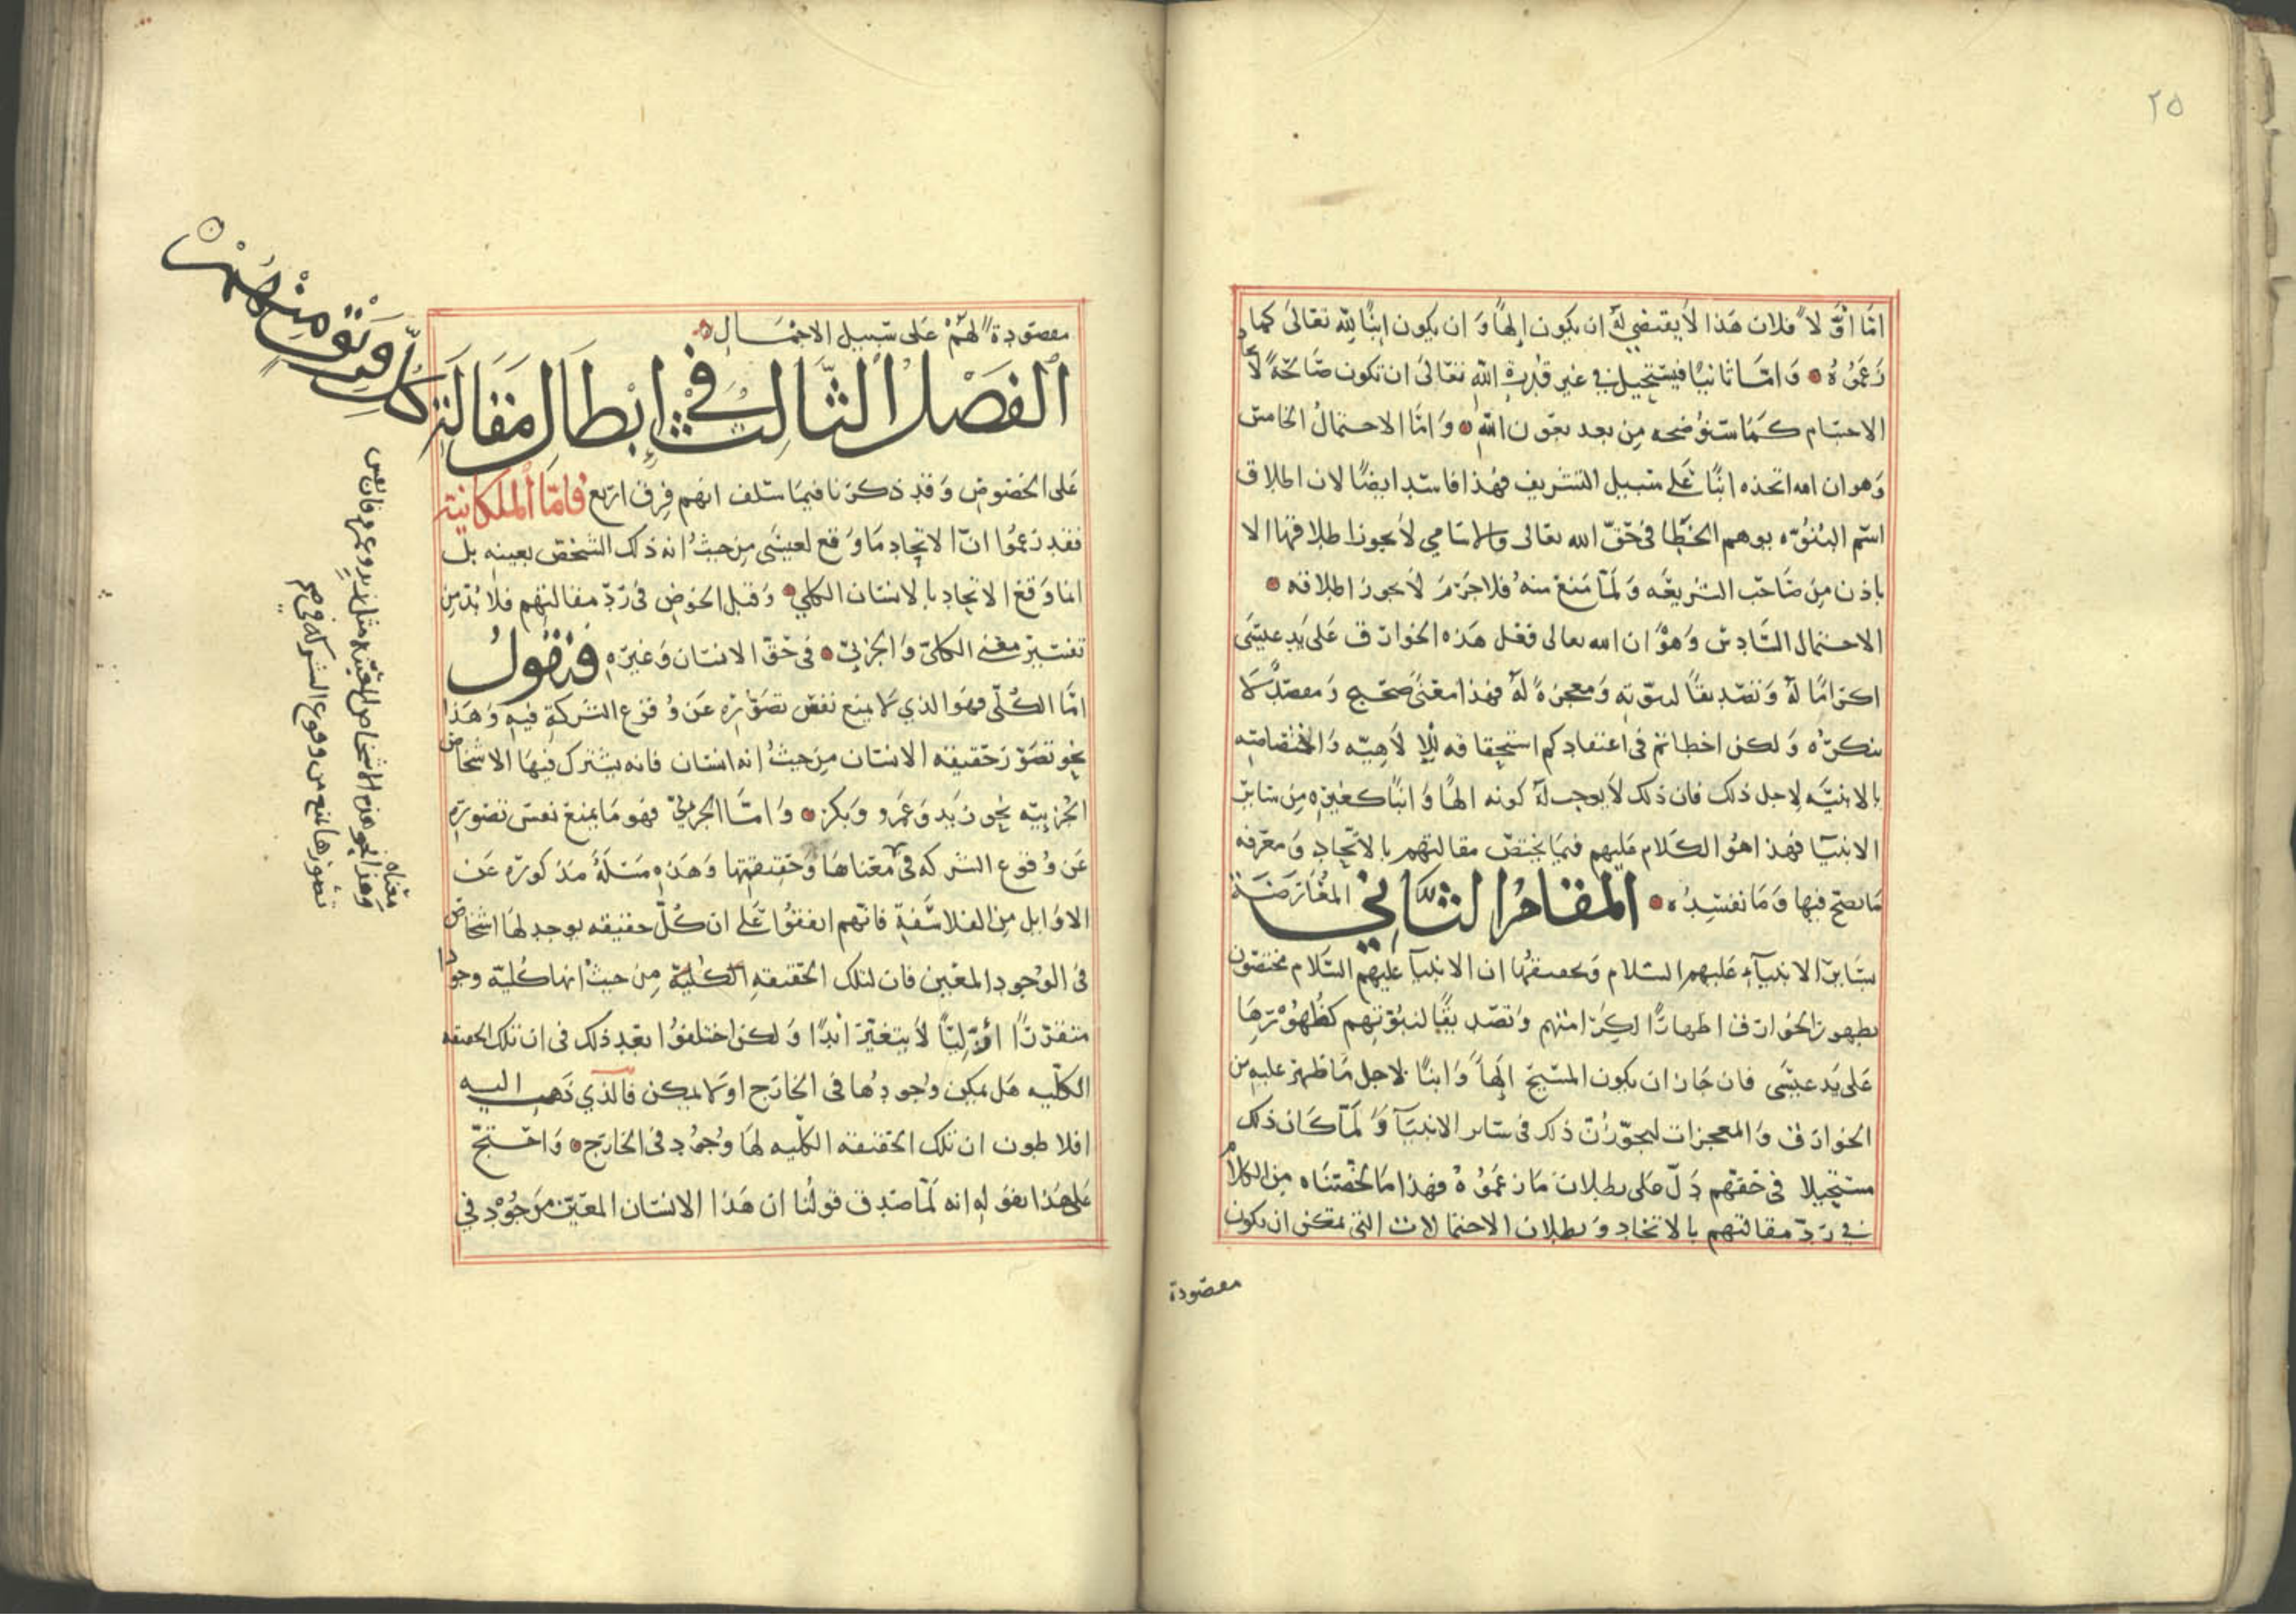 ٢٥
امّا اوّلاً فلان هذا لا يقتضي له ان يكون إلهاً وان يكون ابناً لله تعالى كما
زعموه وامّا ثانيًا فيستحيل في غير قدرة الله تعالى ان تكون صالحة لا
الاجسام كما سنوضحه من بعد بعون الله وامّا الاحتمال الخامس
وهو ان الله اتخذه ابنًا على سبيل التشريف فهذا فاسد ايضًا لان اطلاق
اسم البنوّه يوهم الخطا في حقّ الله تعالى والاسامي لا يجوز اطلاقها الا
باذن من صاحب الشريعه ولمّا منع منه فلا جرم لا يجوز اطلاقه
الاحتمال السّادس وهو ان الله تعالى فعل هذه الخوارق على يد عيسى
اكرامًا له وتصديقًا لنبوّته ومعجزة له فهذا معنى صحيح ومقصد لا
ننكره ولكن اخطاتم في اعتقادكم استحقاقه للإلاهيّه والاختصاصه
بالابنيّه لاجل ذلك فان ذلك لا يوجب له كونه الهًا وابنًا كغيره من ساير
الانبيآ فهذا هو الكلام عليهم فيما يختصّ مقالتهم بالاتّحاد ومعرفه
ما يصح فيها وما نفسده المقام الثاني المعارضة
بساير الانبيآء عليهم السّلام وتحقيقها ان الانبيآ عليهم السّلام مختصّون
بظهور الخوارق اظهارًا لكرامتهم وتصديقًا لنبوّتهم كظهورها
على يد عيسى فان جاز ان يكون المسيح إلهاً وابنًا لاجل ما ظهر عليه من
الخوارق والمعجزات ليجوّزنّ ذلك في ساير الانبيآ ولمّا كان ذلك
مستحيلا في حقّهم دلّ على بطلان ما زعموه فهذا ما لخّصناه من الكلام
في ردّ مقالتهم بالاتحاد وبطلان الاحتمالات التي يمكن ان يكون
مقصودة
مقصودة لهم على سبيل الاحتمال
الفصل الثالث في إبطال مقالة كلّ فرقة منهم
على الخصوص وقد ذكرنا فيما سلف انهم فرق اربع فامّا الملكانية
فقد زعموا انّ الاتحاد ما وقع لعيسى من حيث انه ذلك الشخص بعينه بل
انما وقع الاتحاد بالانسان الكلي وقبل الخوض في ردّ مقالتهم فلا بدّ من
تفسير معنى الكليّ والجزئيّ في حقّ الانسان وغيره فنقول
امّا الكلّي فهو الذي لا يمنع نفس تصوّره عن وقوع الشركة فيه وهذا
نحو تصوّر حقيقة الانسان من حيث انه انسان فانه يشترك فيها الاشخاص
الجزييّه نحو زيد وعمرو وبكر وامّا الجزئيّ فهو ما يمنع نفس تصوره
عن وقوع الشركه في معناها وحقيقتها وهذه مسئلة مذكورة عن
الاوايل من الفلاسفة فانّهم اتفقوا على ان كلّ حقيقه يوجد لها اشخاص
في الوجود المعيّن فان لتلك الحقيقه الكليّة من حيث انها كليّة وجودا
منفردًا ازليًّا لا يتغيّر ابدًا ولكن اختلفوا بعد ذلك في ان تلك الحقيقه
الكلّيه هل يمكن وجودها في الخارج او لا يمكن فالذي ذهب اليه
افلاطون ان تلك الحقيقه الكلّيه لها وجود في الخارج واحتجّ
على هذا بقوله انه لمّا صدق قولنا ان هذا الانسان المعيّن موجود في
معناه
وهذا نحو هذه الاشخاص المعيّنه مثل زيد وعمرو فان نفس
تصورها يمنع من وقوع الشركه فيه صح